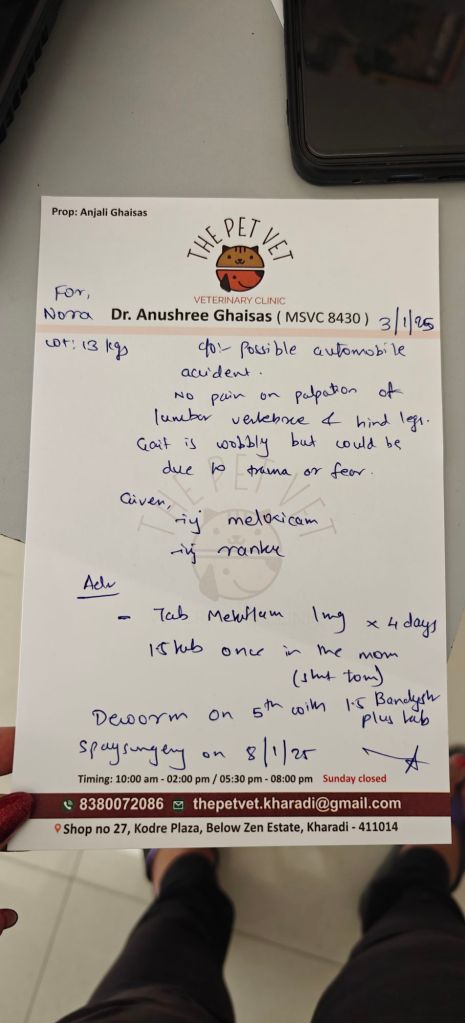 Prop: Anjali Ghaisas
THE PET VET
VETERINARY CLINIC
For,
Nora
Dr. Anushree Ghaisas ( MSVC 8430 ) 3/1/25
wt: 13 kgs
c/o:- Possible automobile
accident.
No pain on palpation of
lumbar vertebrae & hind legs.
Gait is wobbly but could be
due to trauma or fear.
Given,
-inj meloxicam
-inj rantac
Adv
- Tab Meloflam 1mg x 4 days
1.5 tab once in the morn
(start tom)
Deworm on 5th with 1.5 Bandyst
plus tab
Spay surgery on 8/1/25
Timing: 10:00 am - 02:00 pm / 05:30 pm - 08:00 pm Sunday closed
8380072086 thepetvet.kharadi@gmail.com
Shop no 27, Kodre Plaza, Below Zen Estate, Kharadi - 411014